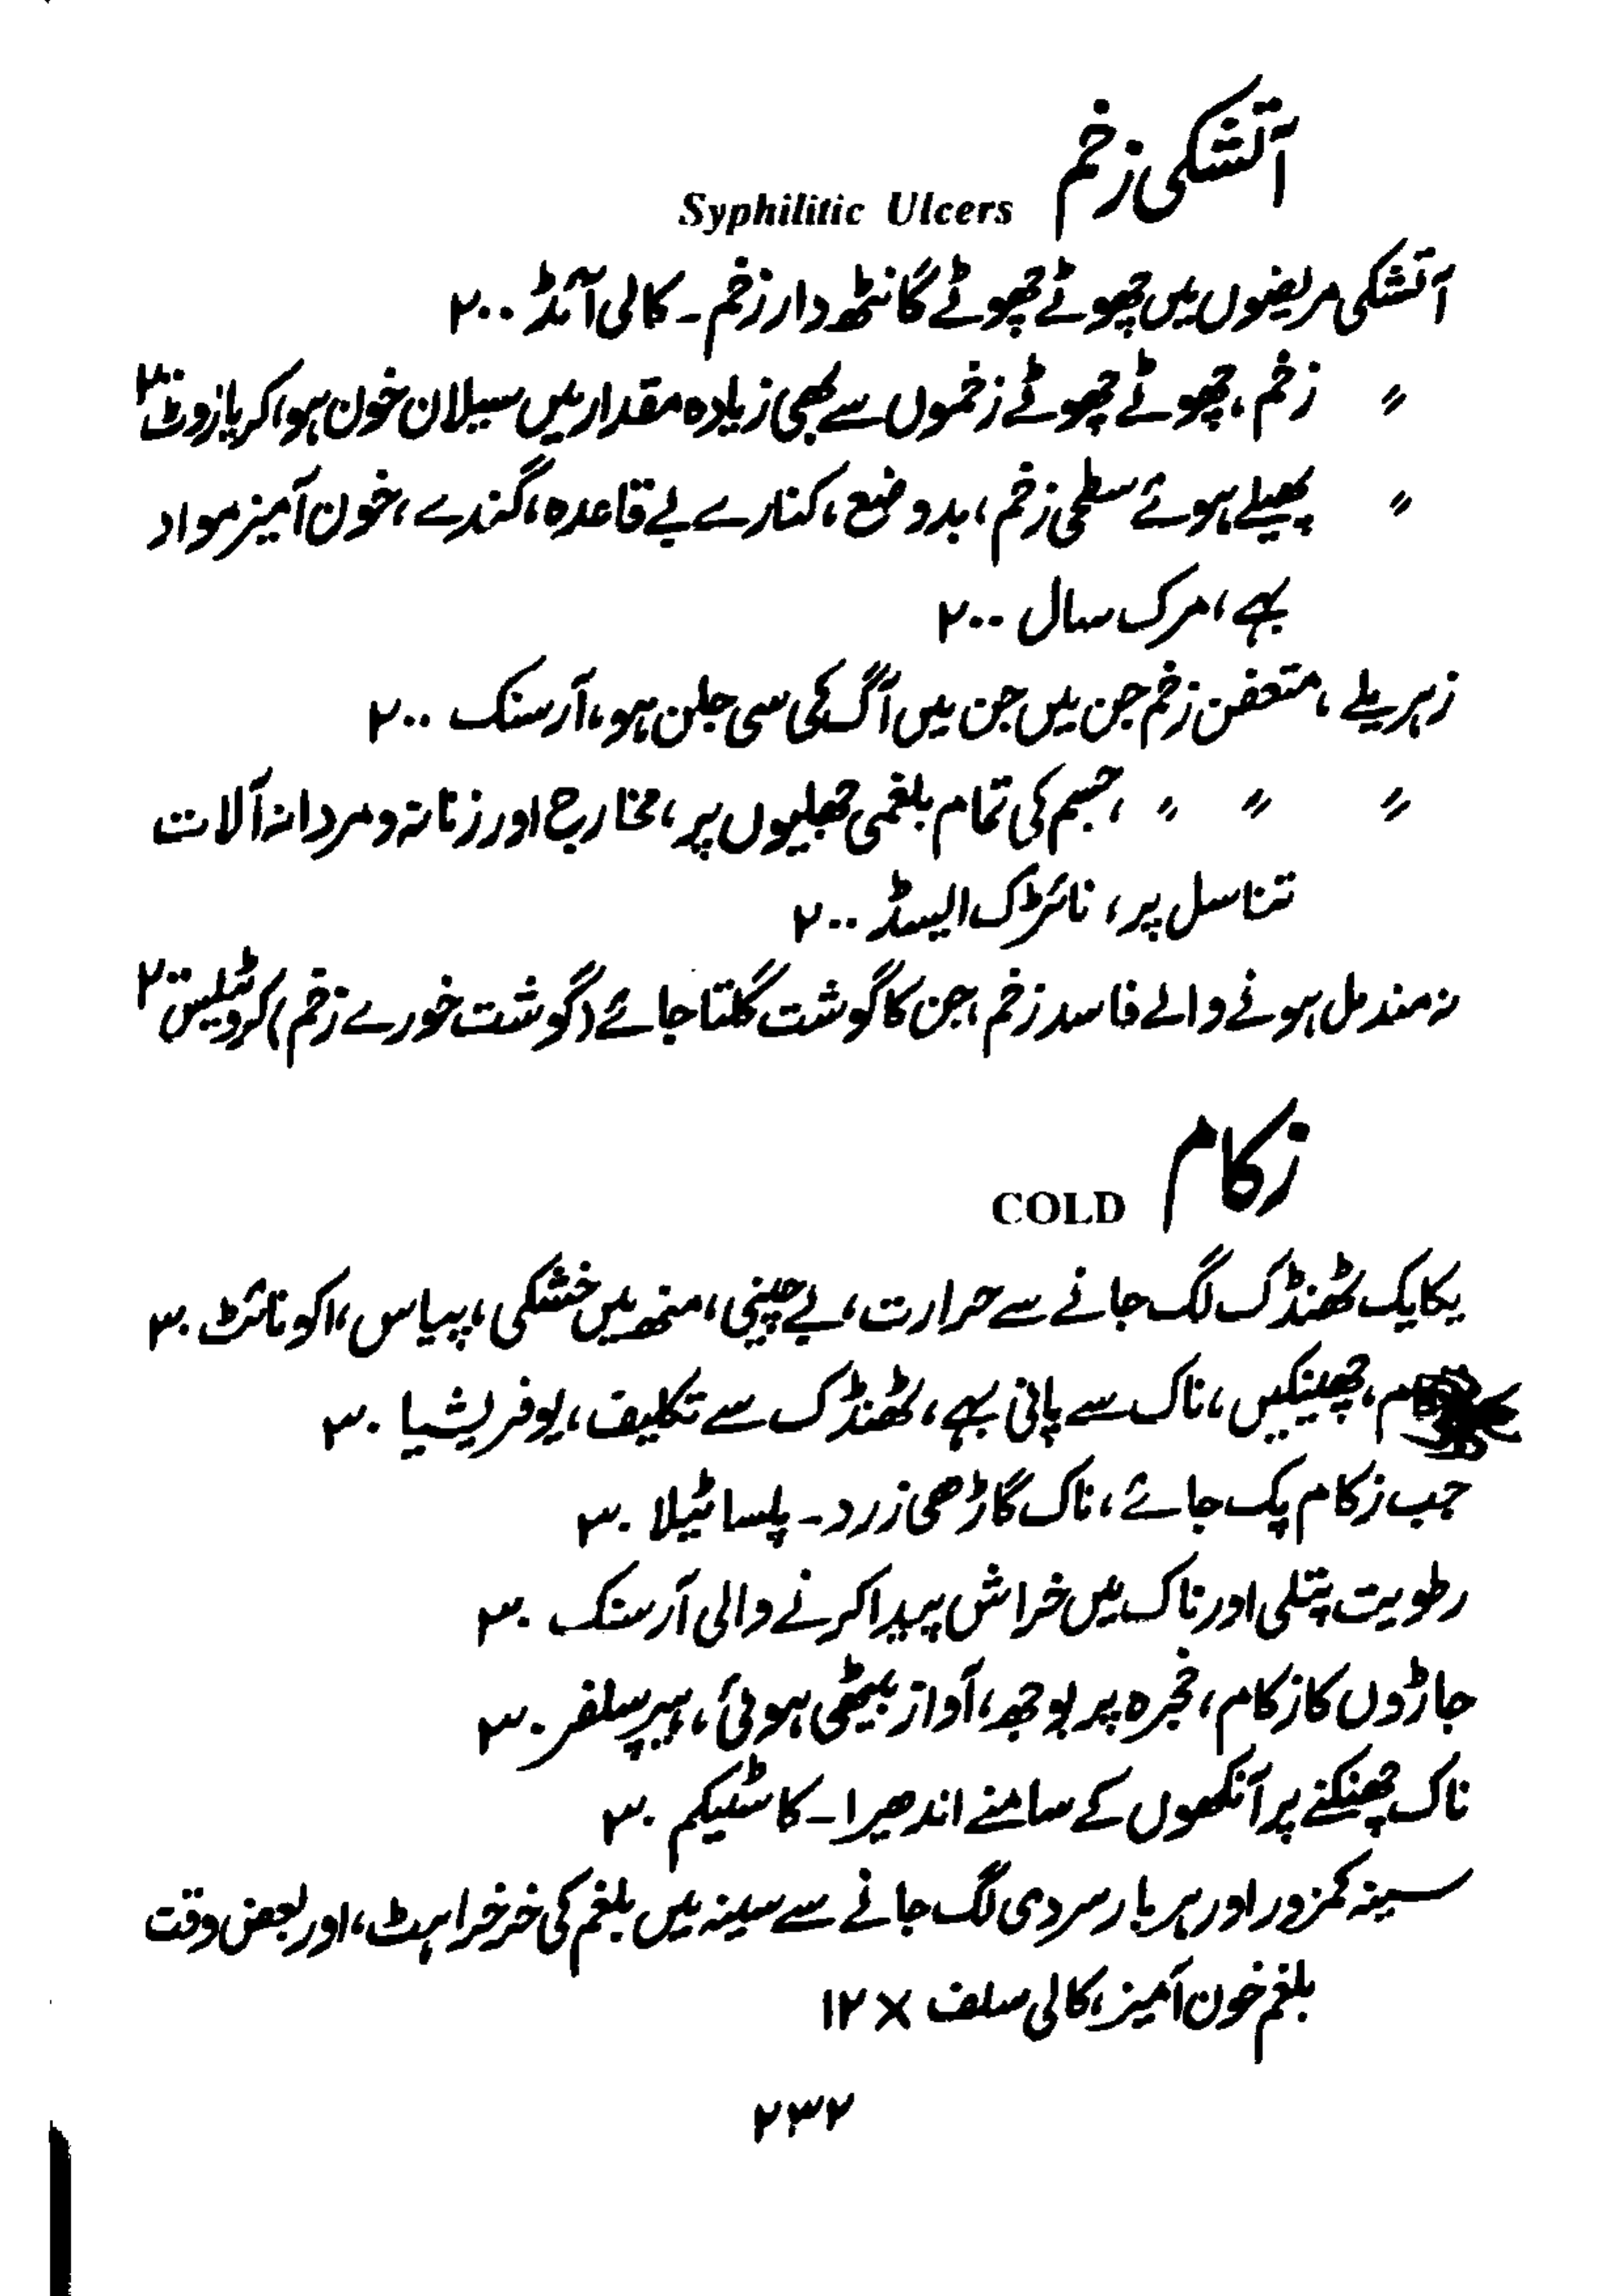 آتشکی زخم Syphilitic Ulcers
آتشکی مریضوں میں چھوٹے چھوٹے گانٹھ دار زخم ۔ کالی آئڈ ۲۰۰
〃 زخم، چھوٹے چھوٹے زخموں سے بھی زیادہ مقدار میں سیلان خون ہو، کریازوٹ ۲۰۰
〃 پھیلے ہوئے سطحی زخم، بدوضع، کنارے بے قاعدہ، گندے، خون آمیز مواد
بہے، مرک سال ۲۰۰
زہریلے، متعفن زخم جن میں جن میں آگ کی سی جلن ہو، آرسنک ۲۰۰
〃 〃 〃 ، جسم کی تمام بلغمی جھلیوں پر، مخارج اور زنانہ و مردانہ آلات
تناسل پر، نائٹرک ایسڈ ۲۰۰
نہ مندمل ہونے والے فاسد زخم، جن کا گوشت گلتا جائے (گوشت خورے زخم) کروٹیلیس ۲۰۰
زکام COLD
یکایک ٹھنڈک لگ جانے سے حرارت، بے چینی، منھ میں خشکی، پیاس، اکونائٹ ۳۰
چھینکیں، ناک سے پانی بہے، ٹھنڈک سے تکلیف، یوفریشیا ۳۰
جب زکام پک جائے، ناک گاڑھی زرد ۔ پلساٹیلا ۳۰
رطوبت پتلی اور ناک میں خراش پیدا کرنے والی آرسنک ۳۰
جاڑوں کا زکام، خجرہ پر بوجھ، آواز بیٹھی ہوئی، ہیپر سلفر ۳۰
ناک چھنکنے پر آنکھوں کے سامنے اندھیرا ۔ کاسٹیکم ۳۰
سینہ کمزور اور ہر بار سردی لگ جانے سے سینہ میں بلغم کی خرخراہٹ، اور بعض وقت
بلغم خون آمیز، کالی سلف ۱۲X
۲۳۲